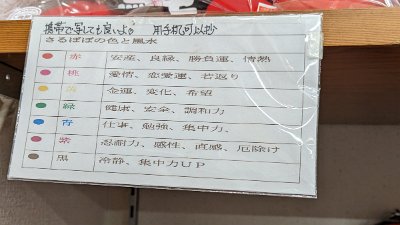 携帯で写しても良いよ。 用手机可以抄
さるぼぼの色と風水
赤 安産、良縁、勝負運、情熱
桃 愛情、恋愛運、若返り
黄 金運、変化、希望
緑 健康、安全、調和力
青 仕事、勉強、集中力、
紫 忍耐力、感性、直感、厄除け
黒 冷静、集中力UP